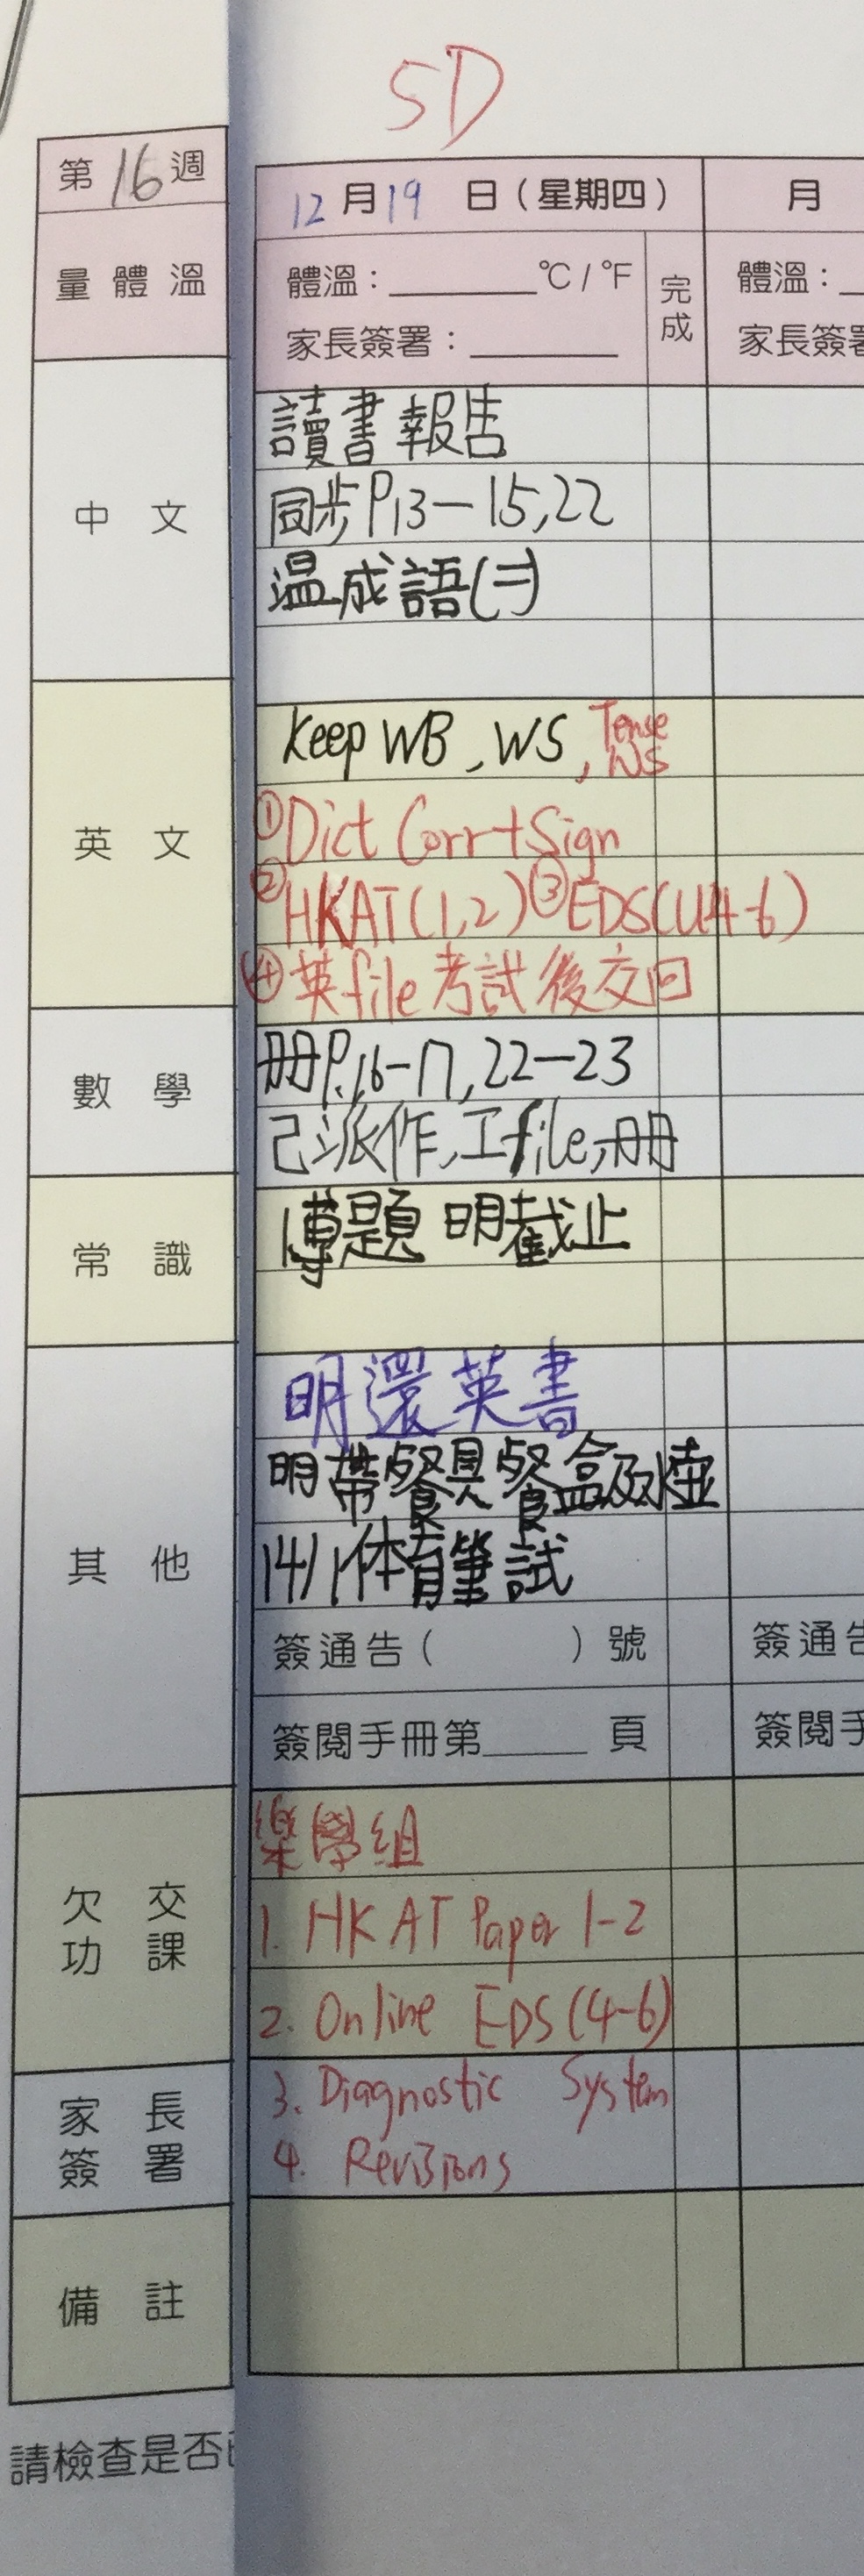 5D
第16週
12月19日(星期四)
月
量體溫
體溫：______°C/°F
完成
體溫：
家長簽署：______
家長簽署
中文
讀書報告
同步P13—15,22
溫成語(二)
英文
Keep WB、WS, Tense WS
①Dict Corr+Sign
②HKAT(1,2) ③EDS(U4-6)
④英file考試後交回
數學
冊P.16-17,22—23
己派作、工file,冊
常識
專題 明截止
其他
明還英書
明帶餐具餐盒及水壺
14/1体育筆試
簽通告( )號
簽通告
簽閱手冊第____頁
簽閱手
欠交功課
樂學組
1. HKAT Paper 1-2
2. Online EDS(4-6)
家長簽署
3. Diagnostic System
4. Revisions
備註
請檢查是否已